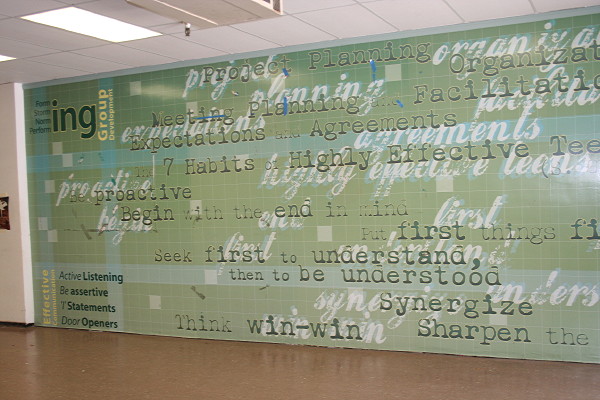 Form
Storm
Norm
Perform
ing
Group
Development
Project Planning
Organizat
Meeting Planning
Facilitatio
Expectations and Agreements
The 7 Habits of Highly Effective Tee
Be proactive
Begin with the end in mind
Put first things fi
Seek first to understand,
then to be understood
Synergize
Think win-win
Sharpen the
planning
expectations
agreements
highly effective teens
proactive
begin
first
synergize
win win
Effective
Communication
Active Listening
Be assertive
'I' Statements
Door Openers